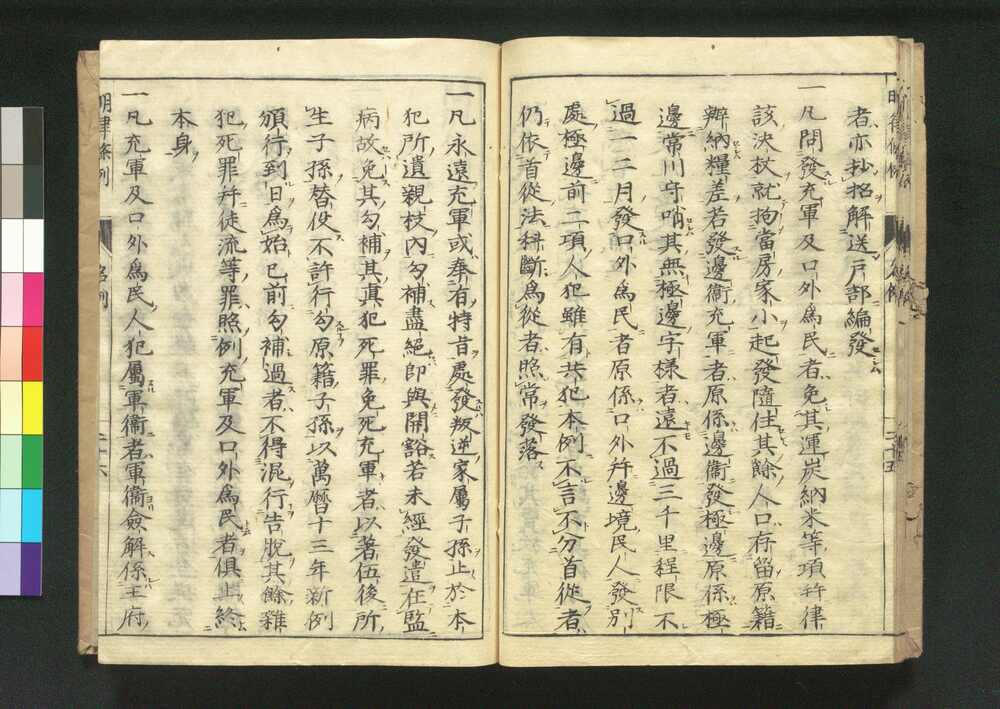 者亦抄招解送戸部編發
一凡問發充軍及口外為民者免其運炭納米等項幷律
該決杖就拘當房家小起發隨住其餘人口存留原籍
辦納糧差若發邊衛充軍者原係邊衛發極邊原係極
邊常川守哨其無極邊字樣者遠不過三千里程限不
過一二月發口外為民者原係口外幷邊境民人發別
處極邊前二項人犯雖有共犯本例不言不分首從者
仍依首從法科斷為從者照常發落
一凡永遠充軍或奉有特旨處發叛逆家屬子孫止於本
犯所遺親枝內勾補盡絕即與開豁若未經發遣在監
病故免其勾補其真犯死罪免死充軍者以著伍後所
生子孫替役不許行勾原籍子孫以萬曆十三年新例
頒行到日為始已前勾補過者不得混行告脫其餘雜
犯死罪幷徒流等罪照例充軍及口外為民者俱止終
本身
一凡充軍及口外為民人犯屬軍衛者軍衛僉解係王府
明律條例
名例
二十六